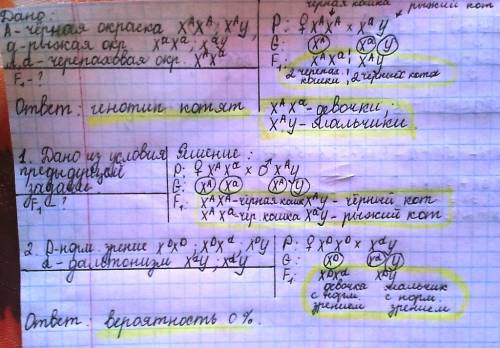 Дано:
А - чёрная окраска XᴬXᴬ; XᴬY;
а - рыжая окр. XᵃXᵃ, XᵃY
Аа - черепаховая окр. XᴬXᵃ
F₁ - ?
чёрная кошка рыжий кот
P: ♀ XᴬXᴬ × XᵃY
G: Xᴬ Xᵃ Y
F₁: XᴬXᵃ; XᴬY
2 черепах. кошки; 2 чёрных кота
Ответ: гинотип котят XᴬXᵃ - девочки;
XᴬY - мальчики.
1. Дано из условия предыдущей задачи
F₁ - ?
Решение:
P: ♀ XᴬXᵃ × ♂ XᴬY
G: Xᴬ Xᵃ Xᴬ Y
F₁: XᴬXᴬ - чёрная кошка XᴬY - чёрный кот
XᴬXᵃ чер. кошка XᵃY - рыжий кот
2. D - норм. зрение XᴰXᴰ; XᴰXᵈ; XᴰY
d - дальтонизм XᵈY; XᵈY
P: ♀ XᴰXᴰ × XᵈY
G: Xᴰ Xᵈ Y
F₁: XᴰXᵈ XᴰY
девочка мальчик
с норм. с норм.
зрением зрением
Ответ: вероятность 0%.